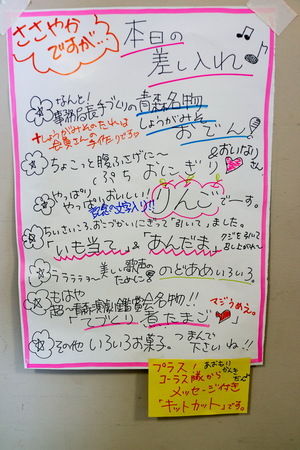 ささやか
ですが…
本日の
差し入れ
なんと！
事務局長手づくりの青森名物
しょうがみそ
おでん！
＋しょうがみそのたれは
会長さんの
手作りです
ちょこっと腹ふさげに…
ぷち おにぎり
＆おいなり
さん
やっぱり
やっぱりおいしい!!
りんごでーす。
ちいさいころ、おこづかいにぎって「引いて」ました。
「いも当て」＆「あんだま」
クジを引いて
ラララララ〜 美しい歌声の
ために
のどあめいろいろ。
もはや
名物!!
「てづくり煮たまご」
マジうめぇ。
その他 いろいろお菓子。 まんで
下さいね!!
プラス！
コーラス隊から
メッセージ付き
「キットカット」です。